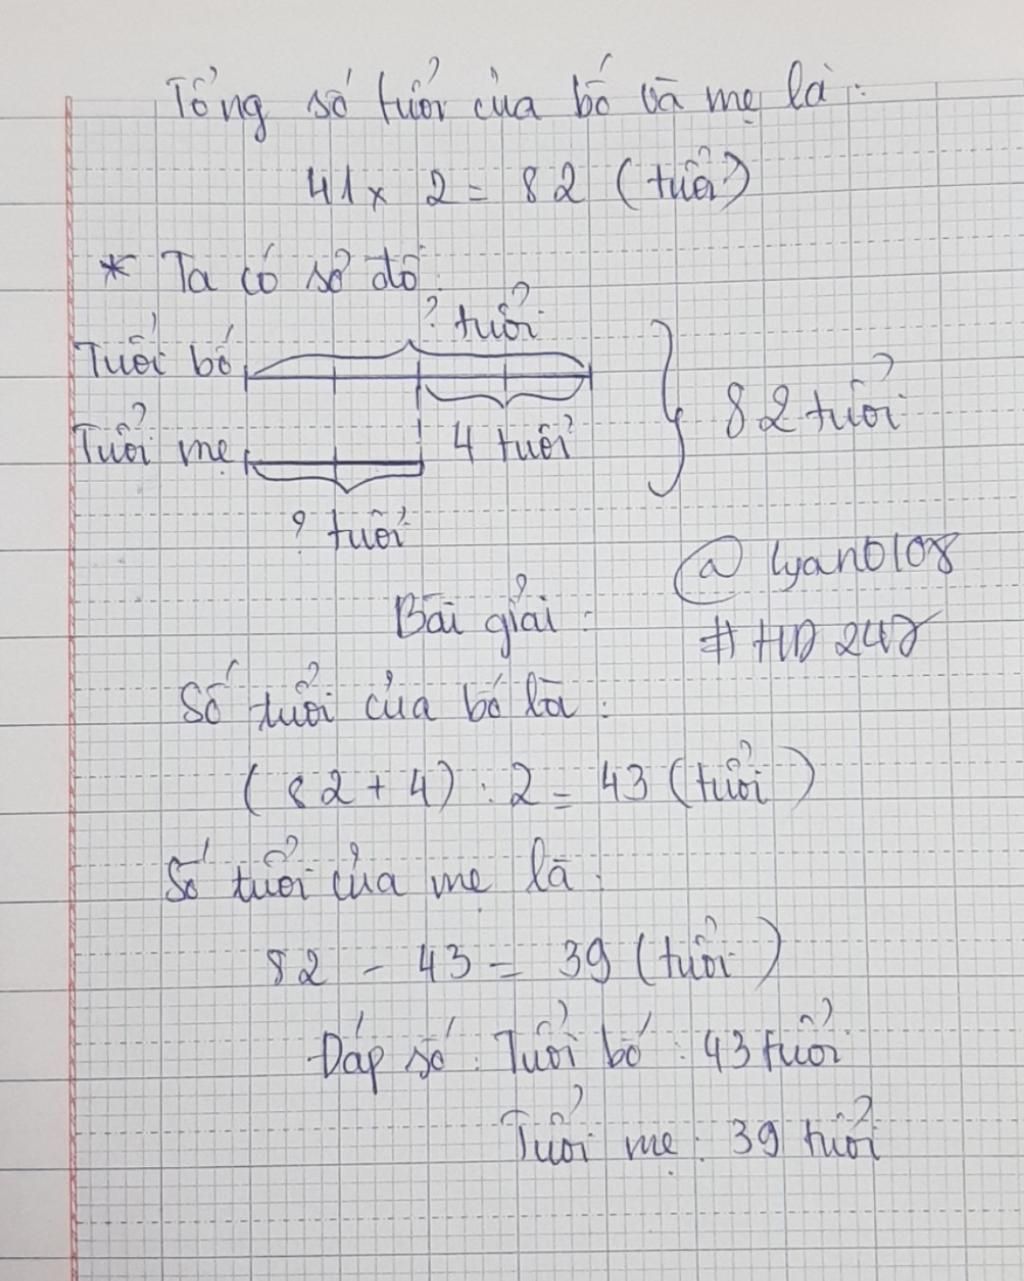 Tổng số tuổi của bố và mẹ là:
41 x 2 = 82 (tuổi)
* Ta có sơ đồ:
? tuổi
Tuổi bố
82 tuổi
Tuổi mẹ
4 tuổi
? tuổi
@ lyan0108
Bài giải:
# HD 247
Số tuổi của bố là:
(82 + 4) : 2 = 43 (tuổi)
Số tuổi của mẹ là:
82 - 43 = 39 (tuổi)
Đáp số: Tuổi bố: 43 tuổi
Tuổi mẹ: 39 tuổi